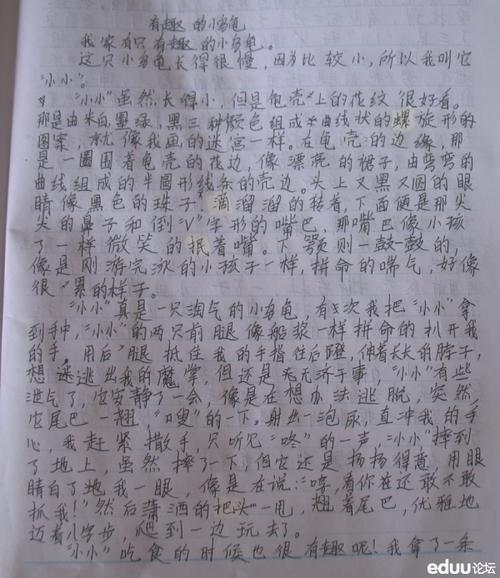 有趣的小乌龟
我家有只有趣的小乌龟。
这只小乌龟长得很慢，因为比较小，所以我叫它
“小小”。
“小小”虽然长得小，但是龟壳上的花纹很好看。
那是由米白，墨绿，黑三种颜色组成曲线状的螺旋形的
图案，就像我画的迷宫一样。在龟壳的边缘，那
是一圈围着龟壳的花边，像漂亮的裙子，由弯弯的
曲线组成的半圆形线条的壳边。头上又黑又圆的眼
睛像黑色的珠子，滴溜溜的转着，下面便是那尖
尖的鼻子和倒“V”字形的嘴巴，那嘴巴像小孩
了一样微笑的抿着嘴。下颚则一鼓一鼓的，
像是刚游完泳的小孩子一样，拼命的喘气，好像
很“累的样子。
“小小”真是一只淘气的小乌龟，有一次我把“小小”拿
到手中，“小小”的两只前腿像船桨一样拼命的扒开我
的手。用后腿抵住我的手指往后蹬，伸着长长的脖子，
想逃出我的魔掌，但还是无济于事，“小小”有些
泄气了，它安静了一会，像是在想办法逃脱，突然，
它尾巴一翘，“嗖”的一下。射出一泡尿，直冲我的手
心，我赶紧撒手，只听见“咚”的一声，“小小”摔到
了地上 虽然摔了一下，但它还是扬扬得意，用眼
睛白了地我一眼，像是在说：“哼，看你在还敢不敢
抓我！”然后潇洒的把头一甩，翘着尾巴，优雅地
迈着八字步，爬到一边玩去了。
“小小”吃食的时候也很有趣呢！我拿了一条
eduu论坛